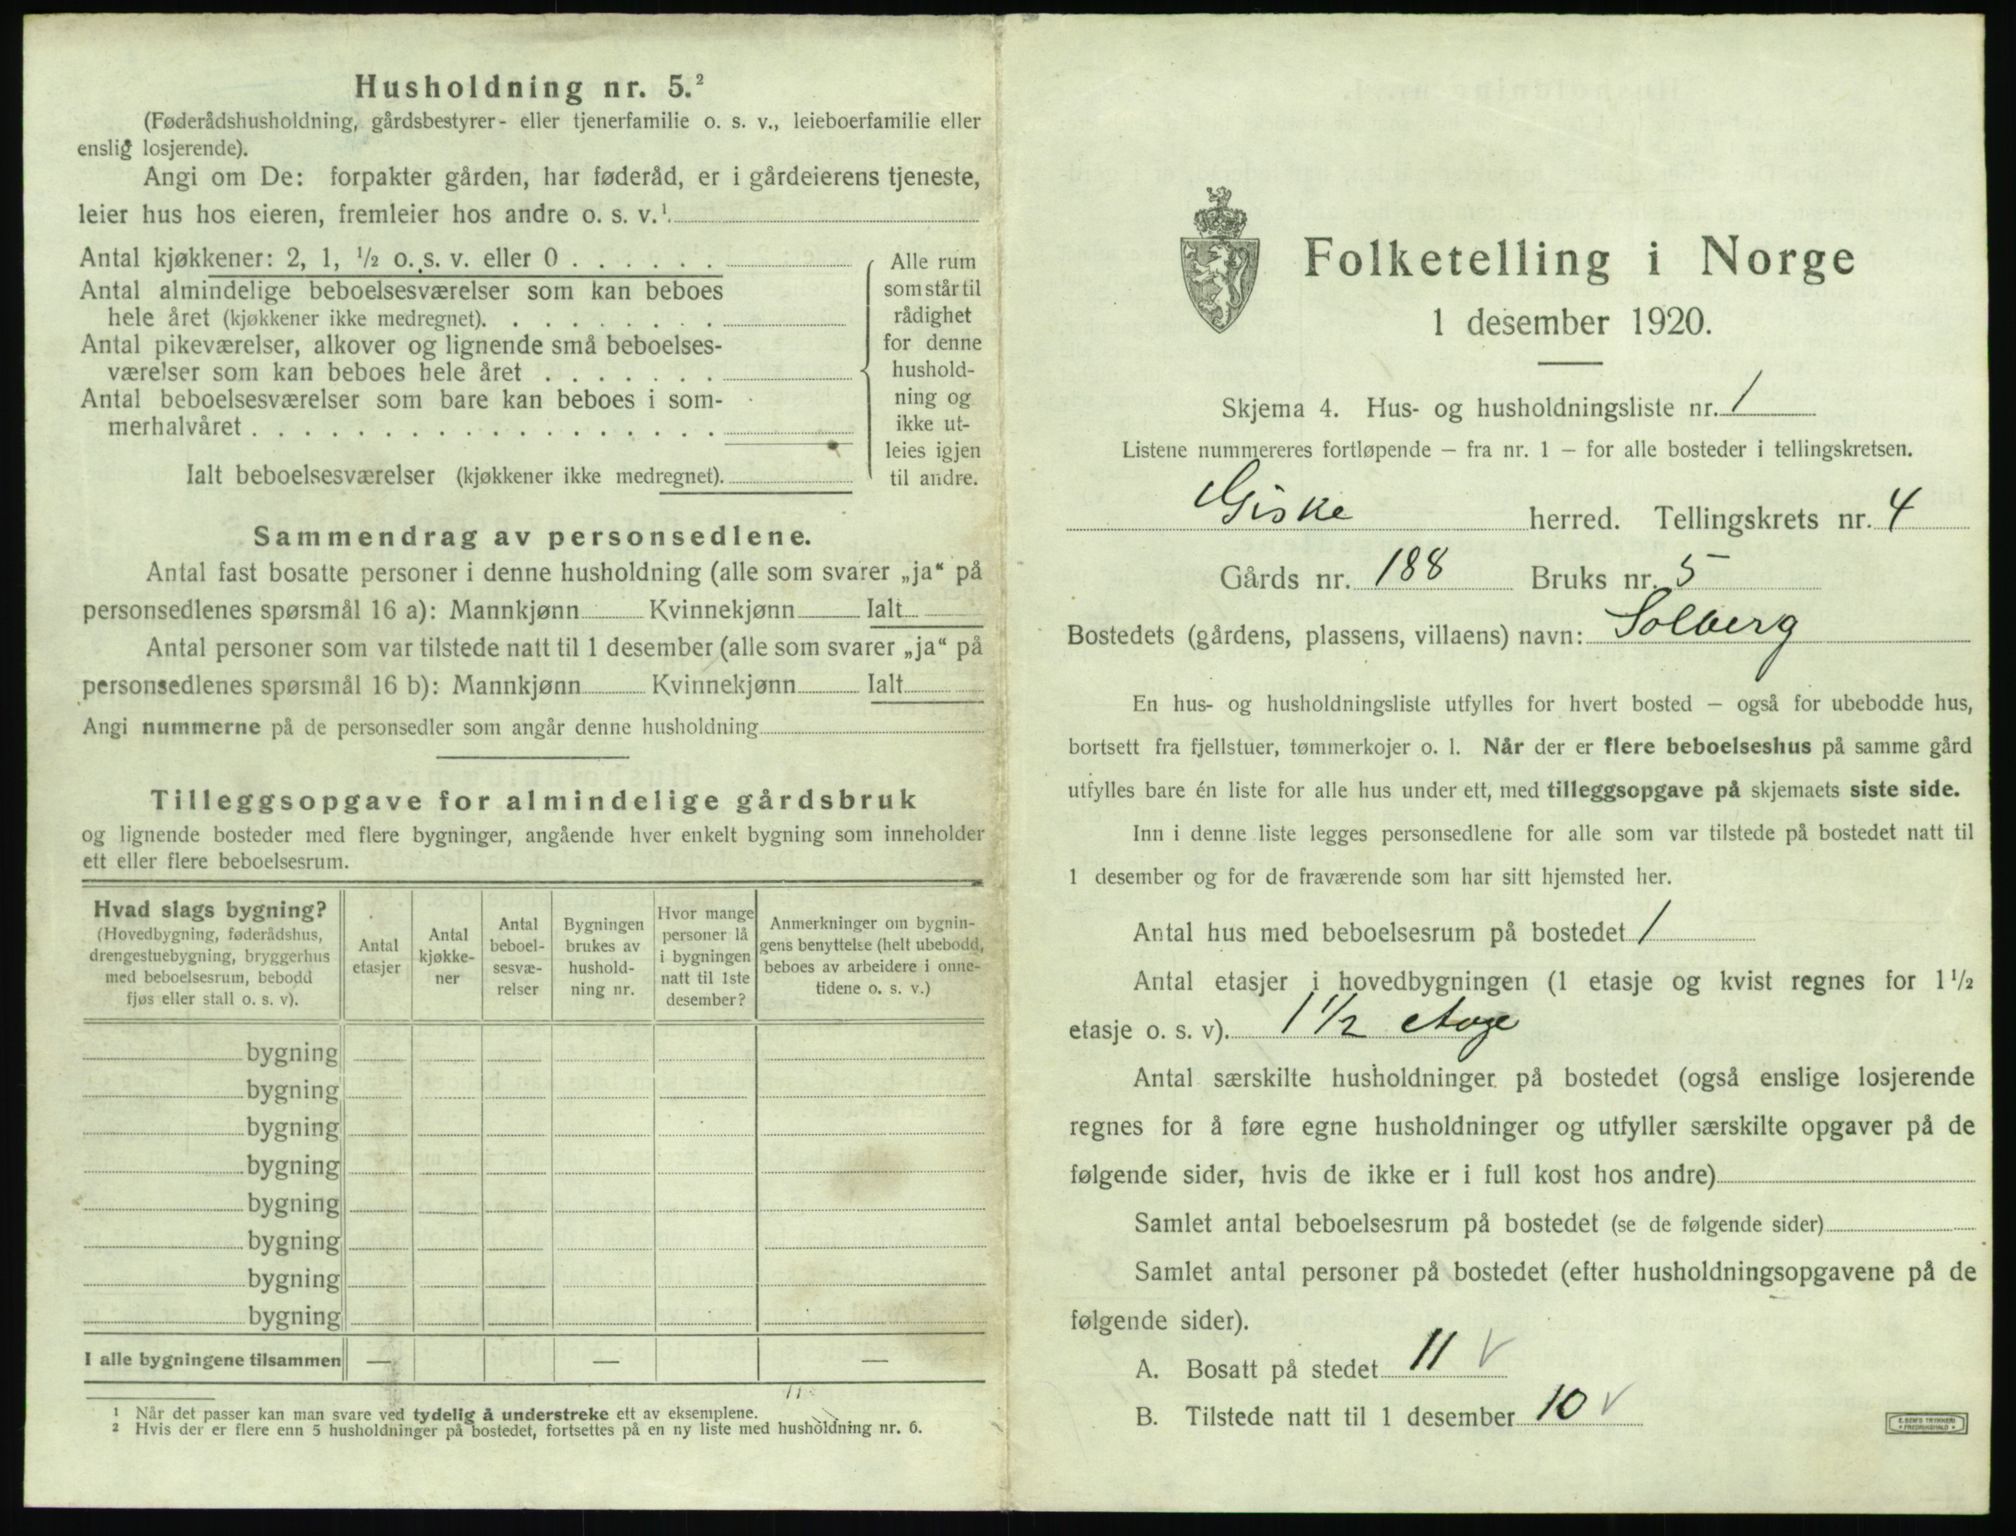 Husholdning nr. 5.²
(Føderådshusholdning, gårdsbestyrer- eller tjenerfamilie o. s. v., leieboerfamilie eller
enslig losjerende).
Angi om De: forpakter gården, har føderåd, er i gårdeierens tjeneste,
leier hus hos eieren, fremleier hos andre o. s. v.¹
Antal kjøkkener: 2, 1, ½ o. s. v. eller 0
Antal almindelige beboelsesværelser som kan beboes
hele året (kjøkkener ikke medregnet).
Antal pikeværelser, alkover og lignende små beboelses-
værelser som kan beboes hele året
Antal beboelsesværelser som bare kan beboes i som-
merhalvåret
Ialt beboelsesværelser (kjøkkener ikke medregnet).
Alle rum
som står til
rådighet
for denne
hushold-
ning og
ikke ut-
leies igjen
til andre.
Sammendrag av personsedlene.
Antal fast bosatte personer i denne husholdning (alle som svarer „ja“ på
personsedlenes spørsmål 16 a): Mannkjønn Kvinnekjønn Ialt
Antal personer som var tilstede natt til 1 desember (alle som svarer „ja“ på
personsedlenes spørsmål 16 b): Mannkjønn Kvinnekjønn Ialt
Angi nummerne på de personsedler som angår denne husholdning
Tilleggsopgave for almindelige gårdsbruk
og lignende bosteder med flere bygninger, angående hver enkelt bygning som inneholder
ett eller flere beboelsesrum.
Hvad slags bygning?
(Hovedbygning, føderådshus,
drengestuebygning, bryggerhus
med beboelsesrum, bebodd
fjøs eller stall o. s. v).
Antal
etasjer
Antal
kjøkke-
ner
Antal
beboel-
sesvæ-
relser
Bygningen
brukes av
hushold-
ning nr.
Hvor mange
personer lå
i bygningen
natt til 1ste
desember?
Anmerkninger om bygnin-
gens benyttelse (helt ubebodd,
beboes av arbeidere i onne-
tidene o. s. v.)
bygning
bygning
bygning
bygning
bygning
bygning
bygning
bygning
I alle bygningene tilsammen — — —
¹ Når det passer kan man svare ved tydelig å understreke ett av eksemplene.
² Hvis der er flere enn 5 husholdninger på bostedet, fortsettes på en ny liste med husholdning nr. 6.
Folketelling i Norge
1 desember 1920.
Skjema 4. Hus- og husholdningsliste nr. 1
Listene nummereres fortløpende – fra nr. 1 – for alle bosteder i tellingskretsen.
Giske herred. Tellingskrets nr. 4
Gårds nr. 188 Bruks nr. 5
Bostedets (gårdens, plassens, villaens) navn: Solberg
En hus- og husholdningsliste utfylles for hvert bosted – også for ubebodde hus,
bortsett fra fjellstuer, tømmerkojer o. l. Når der er flere beboelseshus på samme gård
utfylles bare én liste for alle hus under ett, med tilleggsopgave på skjemaets siste side.
Inn i denne liste legges personsedlene for alle som var tilstede på bostedet natt til
1 desember og for de fraværende som har sitt hjemsted her.
Antal hus med beboelsesrum på bostedet 1
Antal etasjer i hovedbygningen (1 etasje og kvist regnes for 1½
etasje o. s. v). 1½ etage
Antal særskilte husholdninger på bostedet (også enslige losjerende
regnes for å føre egne husholdninger og utfyller særskilte opgaver på de
følgende sider, hvis de ikke er i full kost hos andre)
Samlet antal beboelsesrum på bostedet (se de følgende sider)
Samlet antal personer på bostedet (efter husholdningsopgavene på de
følgende sider).
A. Bosatt på stedet 11 v
B. Tilstede natt til 1 desember 10 v